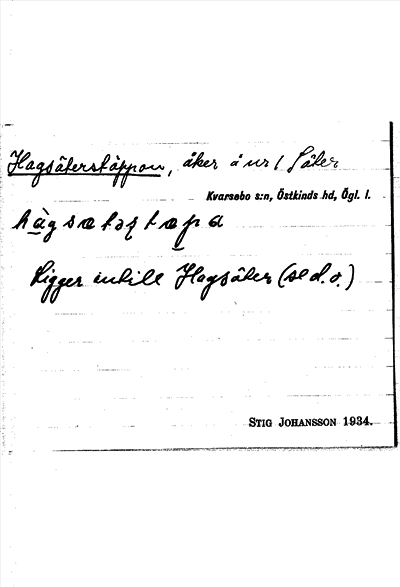 Hagsäterstäppan, åker å nr 1 Säter
Kvarsebo s:n, Östkinds hd, Ögl. l.
Ligger intill Hagsäter (se d. o.)
STIG JOHANSSON 1934.